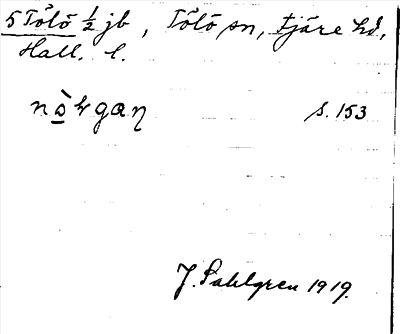 5 Tölö ½ jb, Tölö sn, Fjäre hd,
Hall. l.
nò̲kgaŋ s. 153
J. Sahlgren 1919.